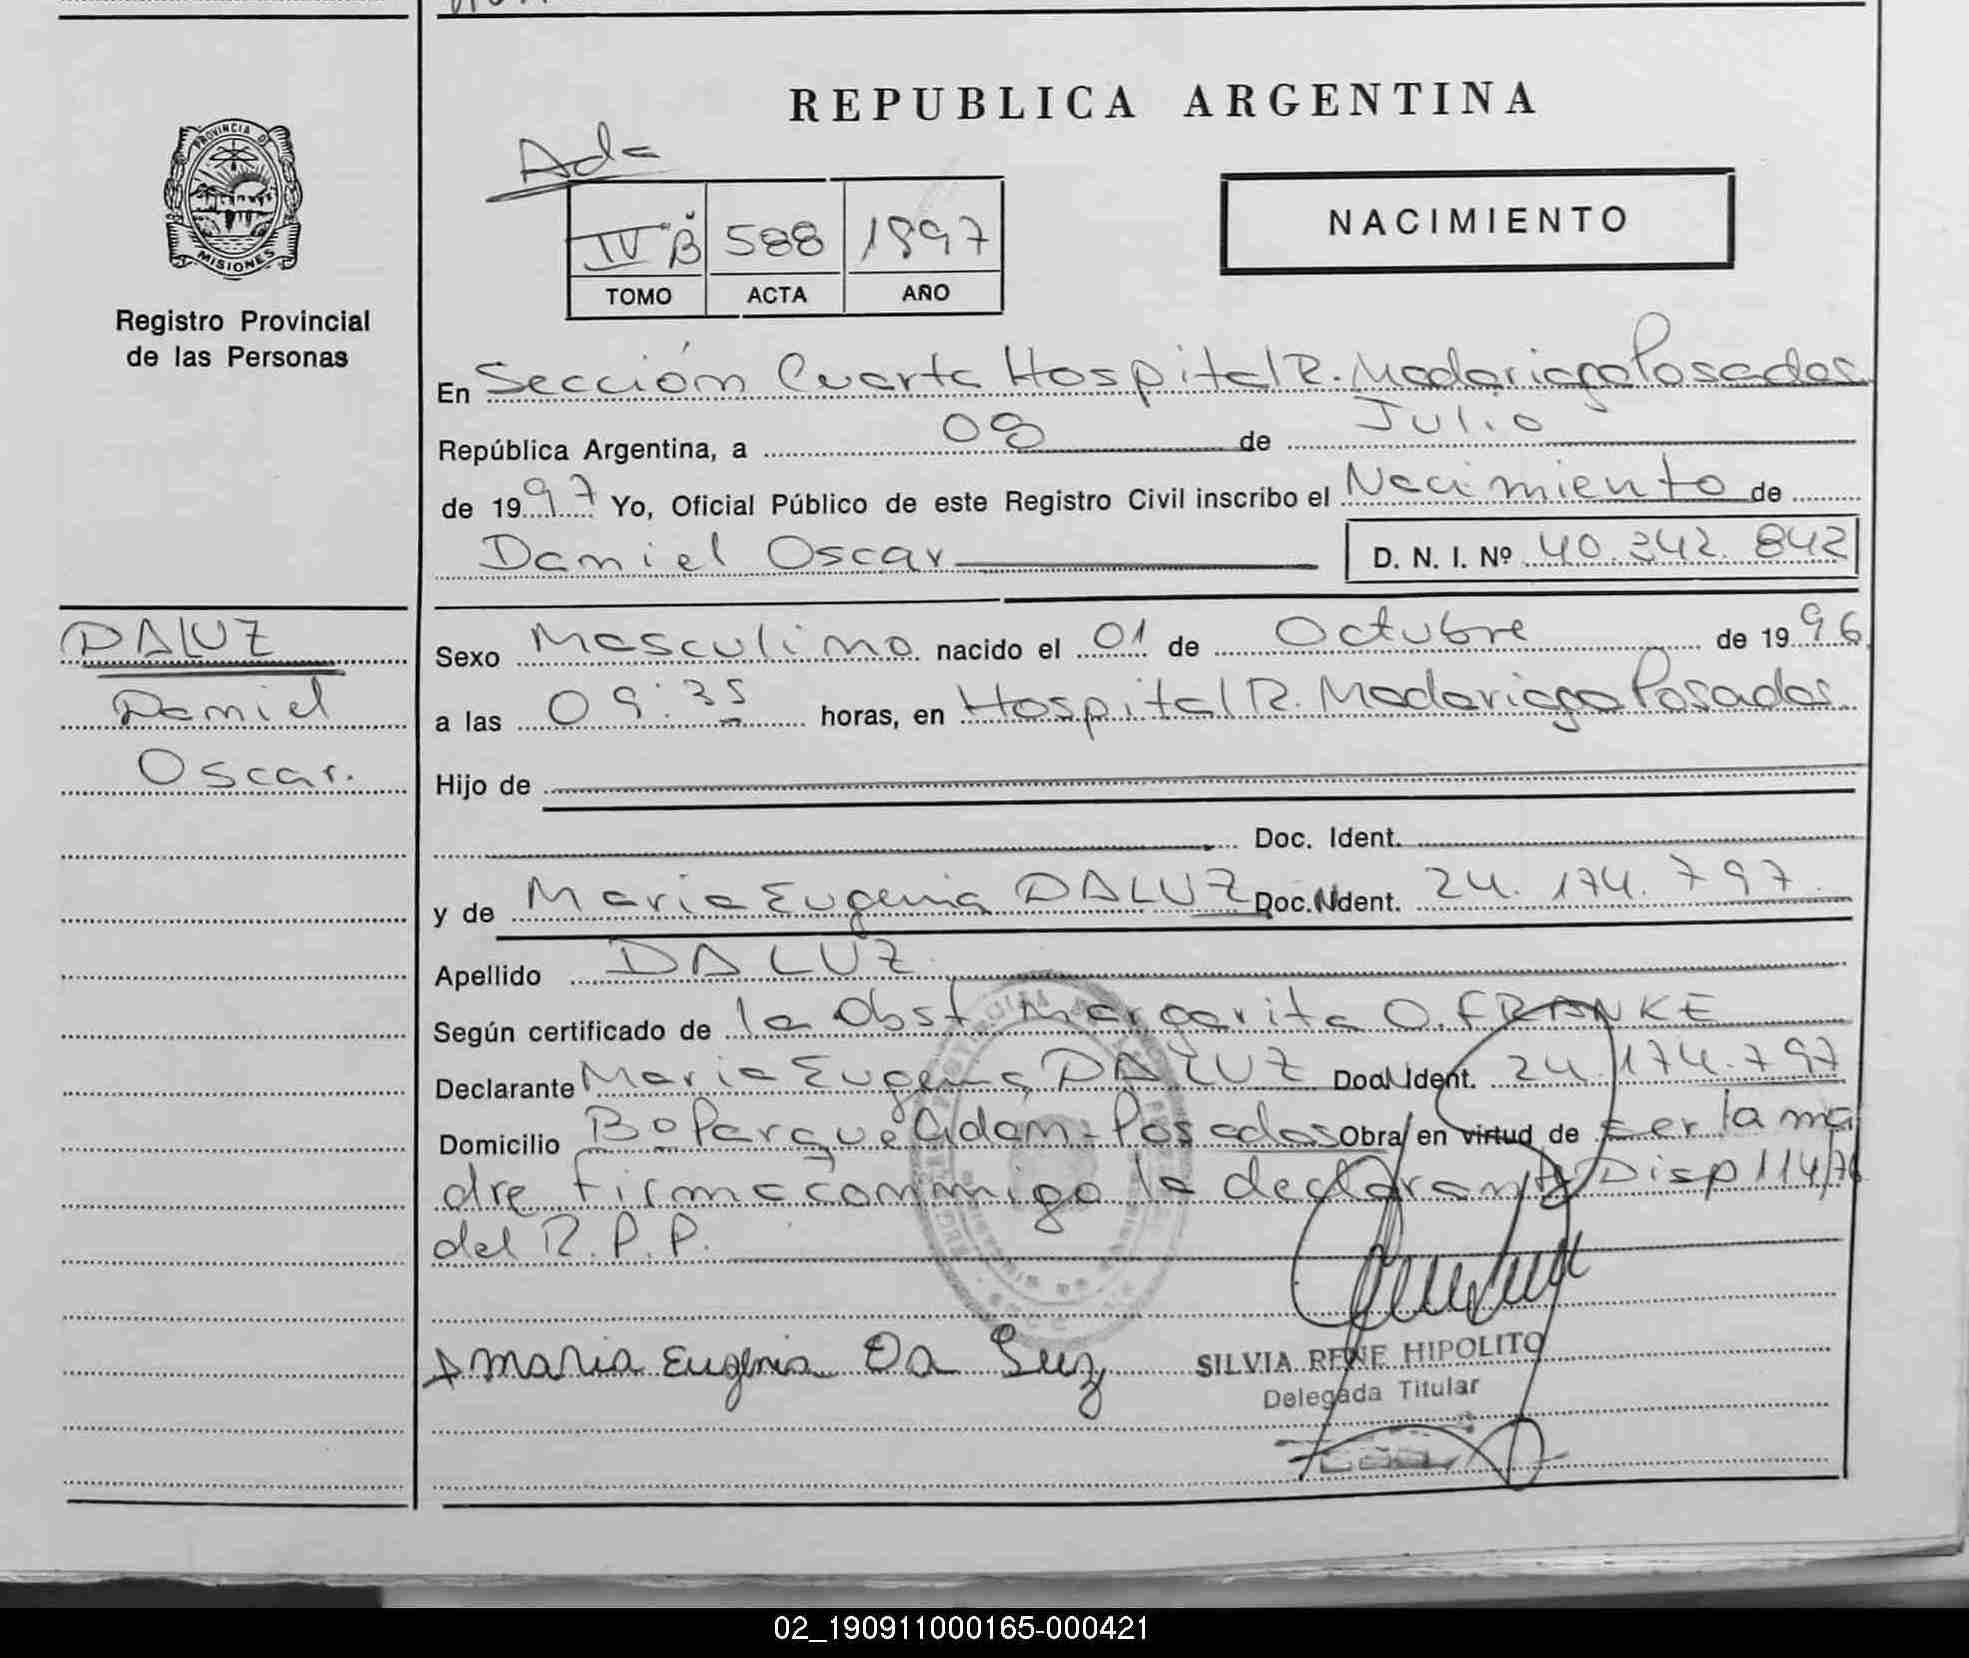 REPUBLICA ARGENTINA
PROVINCIA DE
MISIONES
Registro Provincial
de las Personas
Ada
IV B 588 1997
TOMO ACTA AÑO
NACIMIENTO
En Sección Cuarta Hospital R. Madariaga Posadas
República Argentina, a 08 de Julio
de 1997 Yo, Oficial Público de este Registro Civil inscribo el Nacimiento de
Daniel Oscar D. N. I. Nº 40.342.842
DALUZ
Daniel
Oscar.
Sexo Masculino nacido el 01 de Octubre de 1996
a las 09:35 horas, en Hospital R. Madariaga Posadas
Hijo de
Doc. Ident.
y de Maria Eugenia DALUZ Doc. Ident. 24.174.797
Apellido DALUZ
Según certificado de la Obst. Margarita O. FRANKE
Declarante Maria Eugenia DALUZ Doc. Ident. 24.174.797
Domicilio Bº Parque Adam - Posadas Obra en virtud de ser la ma
dre firma conmigo la declarante Disp 114/76
del R.P.P.
Maria Eugenia Da Luz
SILVIA RENE HIPOLITO
Delegada Titular
02_190911000165-000421